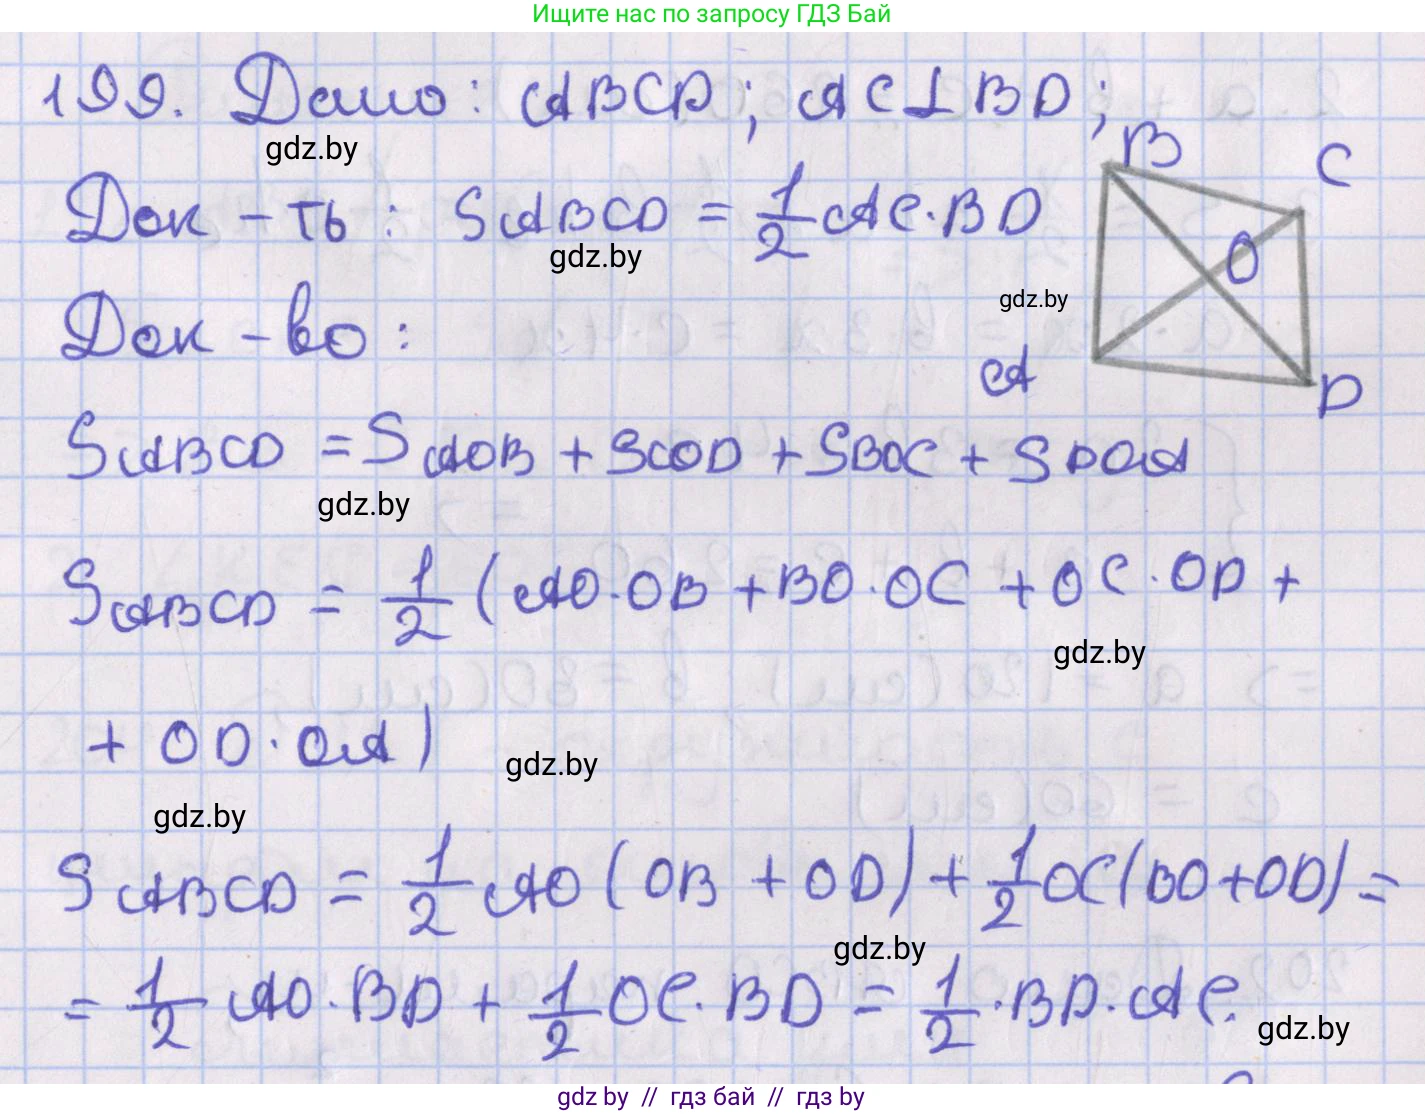 Ищите нас по запросу ГДЗ Бай
199. Дано: ABCD; AC⊥BD;
gdz.by
B
C
Док-ть: SABCD = 1/2 AC·BD
O
gdz.by
gdz.by
Док-во:
A
D
SABCD = SAOB + SCOD + SBOC + SDOA
gdz.by
SABCD = 1/2 (AO·OB + BO·OC + OC·OD +
gdz.by
+ OD·OA)
gdz.by
gdz.by
SABCD = 1/2 AO (OB + OD) + 1/2 OC(BO+OD) =
gdz.by
= 1/2 AO·BD + 1/2 OC·BD = 1/2·BD·AC.
gdz.by
gdz by // гдз бай // гдз by